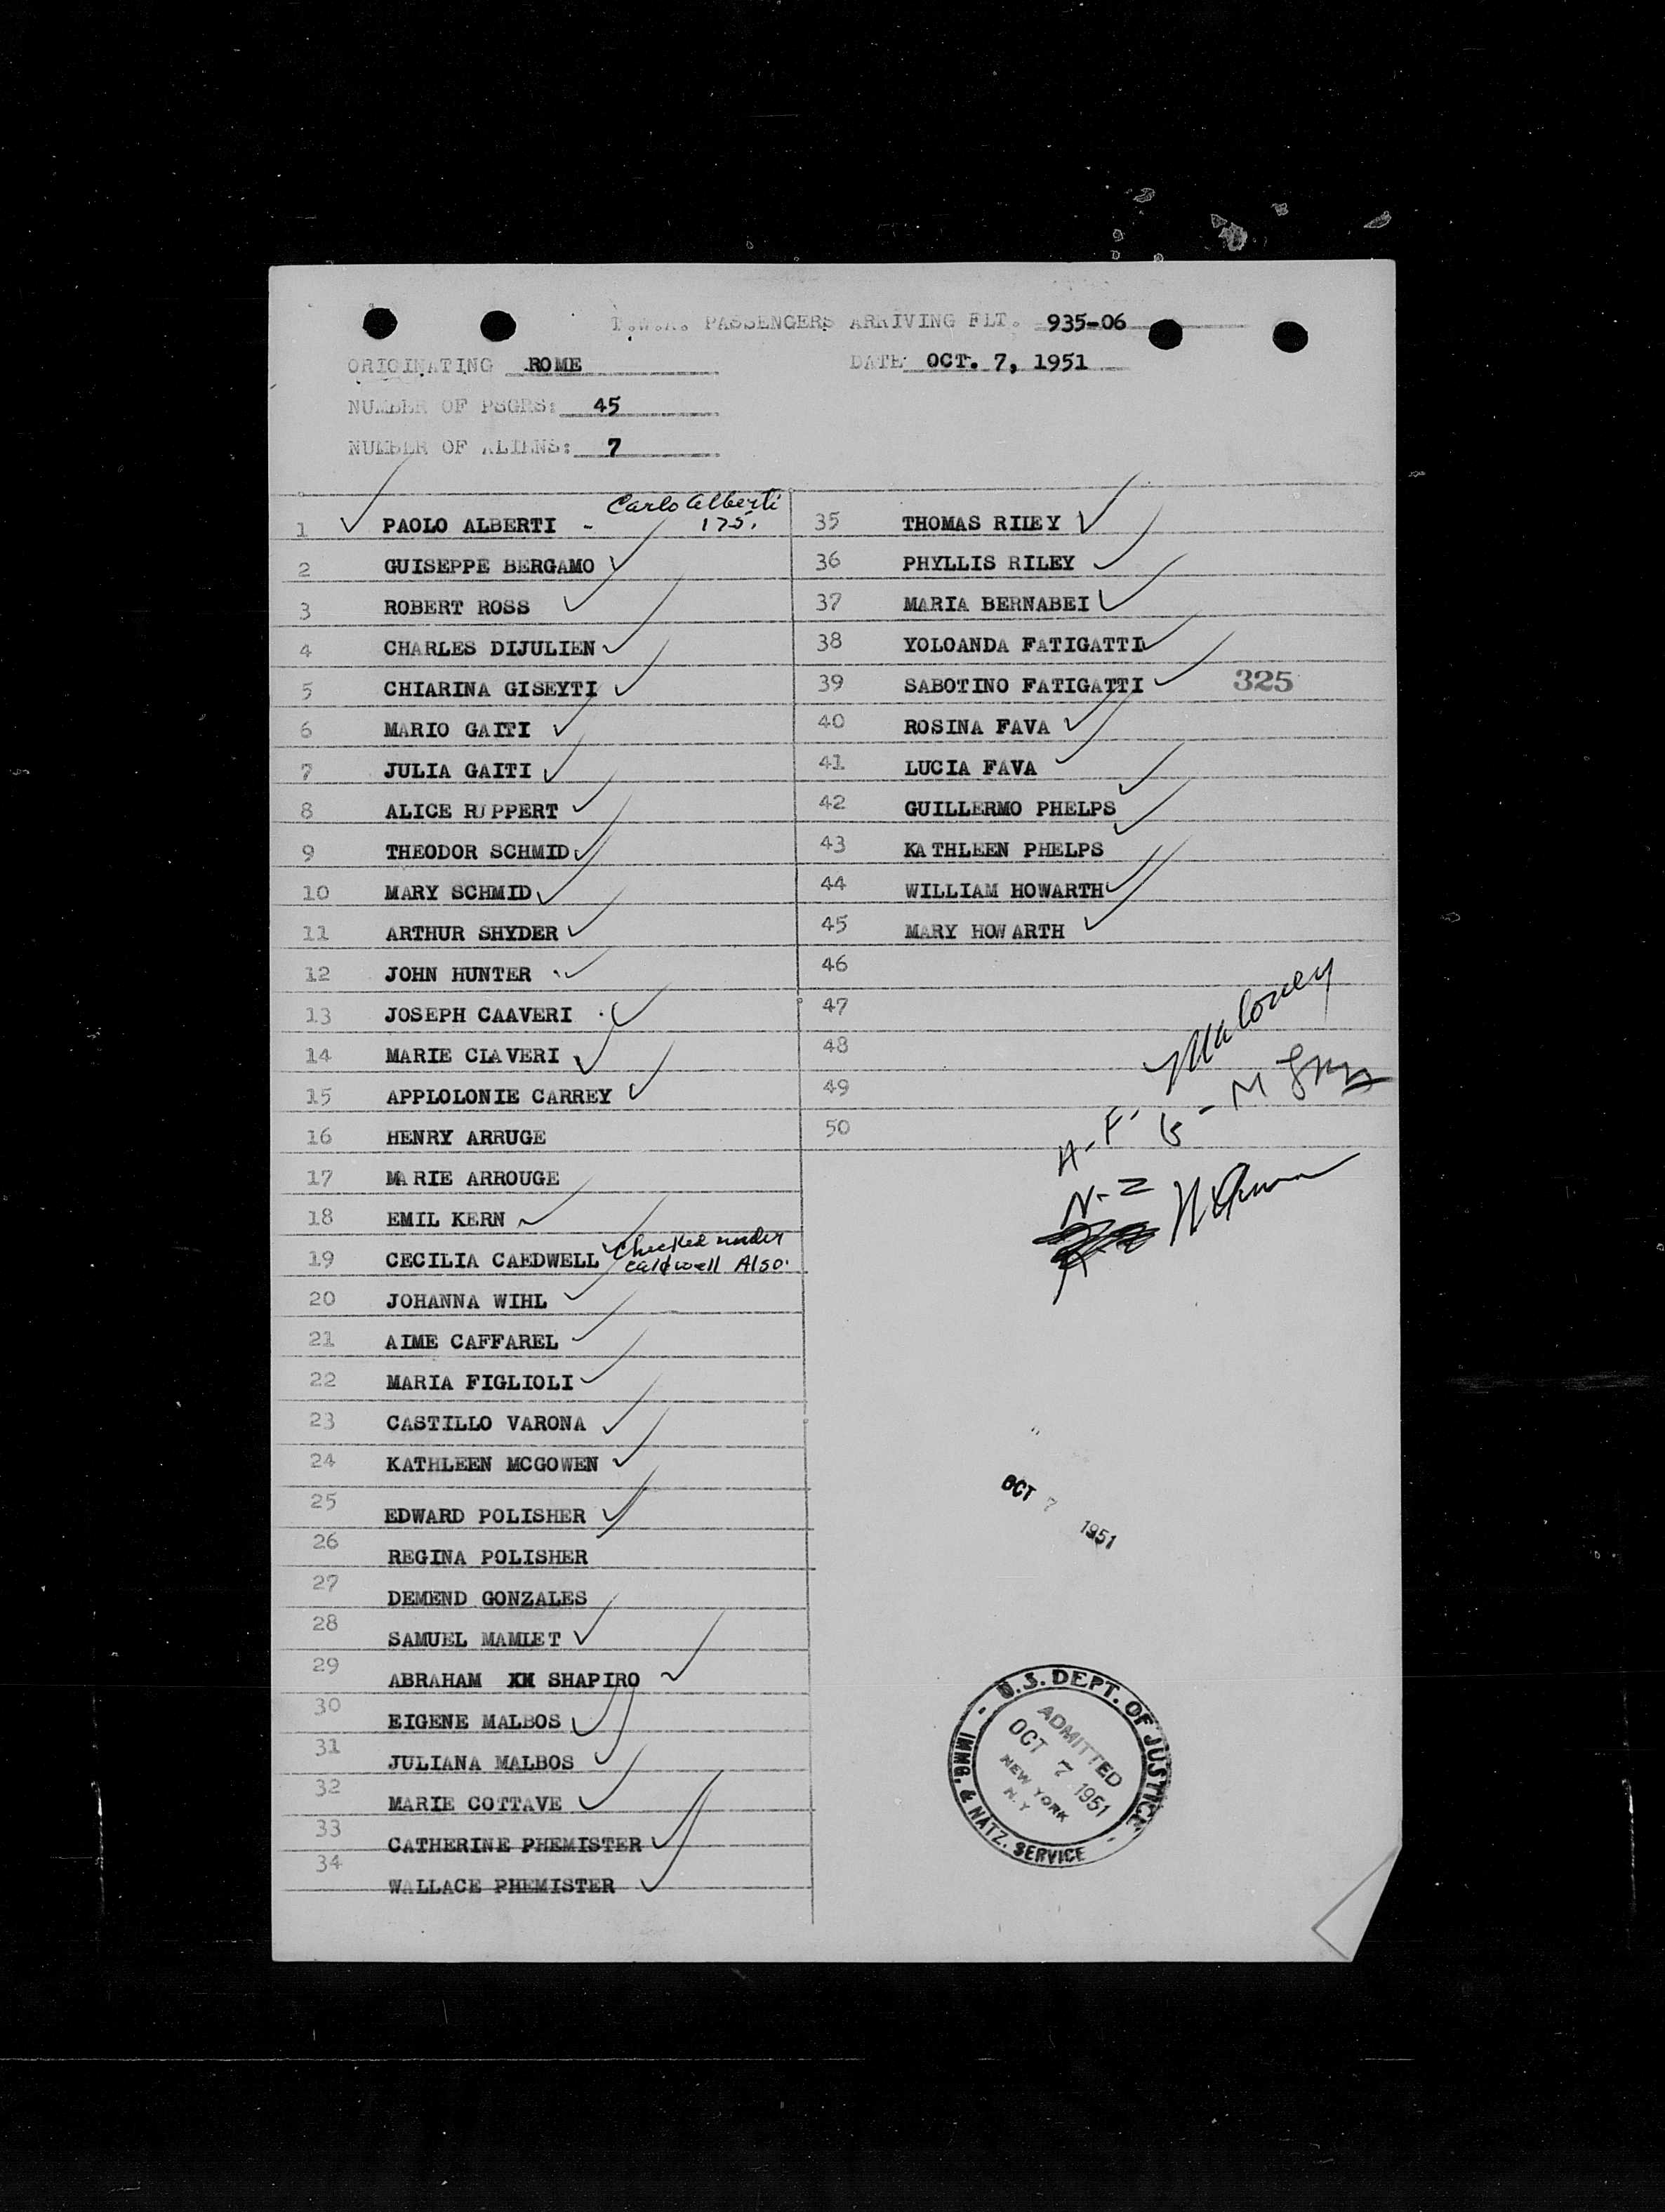 T.W.A. PASSENGERS ARRIVING FLT. 935-06
ORIGINATING ROME
DATE OCT. 7, 1951
NUMBER OF PSGRS: 45
NUMBER OF ALIENS: 7
Carlo Alberti
1 PAOLO ALBERTI - 175.
2 GUISEPPE BERGAMO
3 ROBERT ROSS
4 CHARLES DIJULIEN
5 CHIARINA GISEYTI
6 MARIO GAITI
7 JULIA GAITI
8 ALICE RUPPERT
9 THEODOR SCHMID
10 MARY SCHMID
11 ARTHUR SHYDER
12 JOHN HUNTER
13 JOSEPH CAAVERI
14 MARIE CLAVERI
15 APPLOLONIE CARREY
16 HENRY ARRUGE
17 MARIE ARROUGE
18 EMIL KERN
19 CECILIA CAEDWELL Checked under
Caldwell Also.
20 JOHANNA WIHL
21 AIME CAFFAREL
22 MARIA FIGLIOLI
23 CASTILLO VARONA
24 KATHLEEN MCGOWEN
25 EDWARD POLISHER
26 REGINA POLISHER
27 DEMEND GONZALES
28 SAMUEL MAMLET
29 ABRAHAM XM SHAPIRO
30 EIGENE MALBOS
31 JULIANA MALBOS
32 MARIE COTTAVE
33 CATHERINE PHEMISTER
34 WALLACE PHEMISTER
35 THOMAS RILEY
36 PHYLLIS RILEY
37 MARIA BERNABEI
38 YOLOANDA FATIGATTI
39 SABOTINO FATIGATTI 325
40 ROSINA FAVA
41 LUCIA FAVA
42 GUILLERMO PHELPS
43 KATHLEEN PHELPS
44 WILLIAM HOWARTH
45 MARY HOWARTH
46
47
48
49
50
Maloney
A-F-
G-M
N-Z
OCT 7 1951
U.S. DEPT. OF JUSTICE
ADMITTED
OCT 7 1951
NEW YORK
N.Y.
IMMG. & NATZ. SERVICE